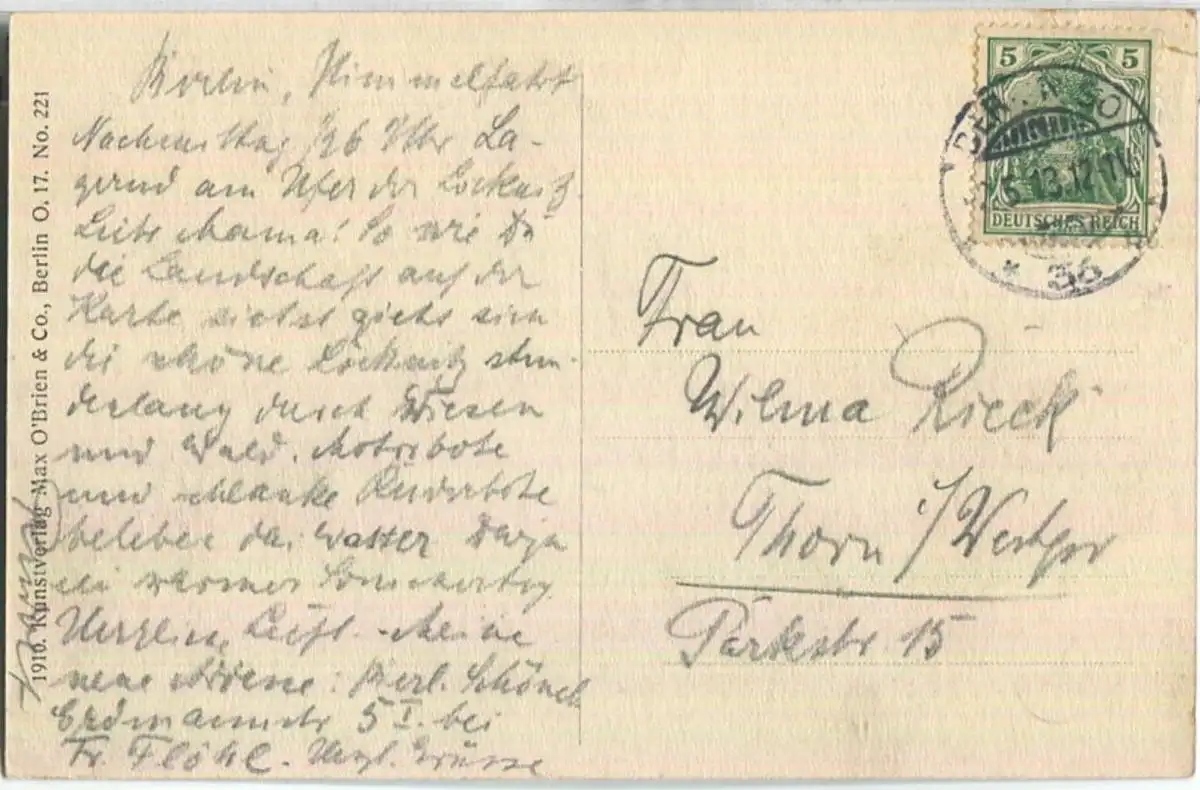 Berlin, Himmelfahrt
Nachmittag 1/26 Uhr La-
gernd am Ufer der Löcknitz.
Liebe Mama! So wie Du
die Landschaft auf der
Karte siehst zieht sich
die schöne Löcknitz stun-
denlang durch Wiesen
und Wald. Motorbote
und schlanke Ruderbote
beleben das Wasser. Dazu
ein schöner
Meine
neue Adresse: Berl. Schöneb.
Erdmannstr 5 I. bei
Fr. Flöhl. Herzl. Grüsse
1910. Kunstverlag Max O'Brien & Co., Berlin O. 17. No. 221
5 5
DEUTSCHES REICH
BERLIN SO
2.5.13.12-1N.
* 36
Frau
Wilma Rieck
Thorn i/Westpr
Parkstr 15